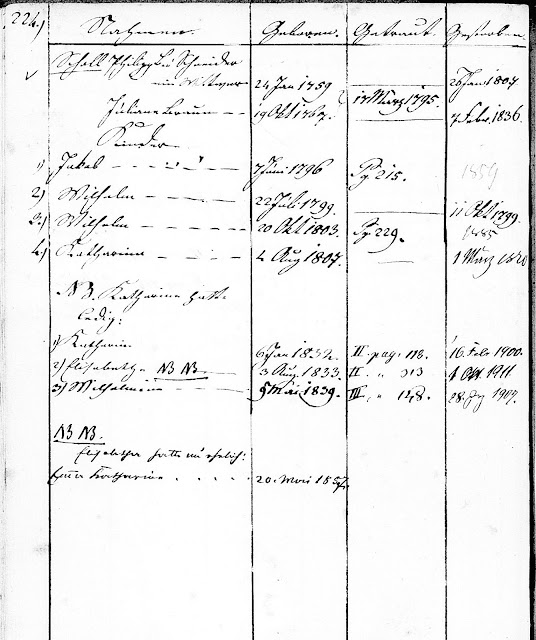 224.) Nahmen. Geboren. Getraut. Gestorben.
Scholl Philipp Schneider
ein Wittwer 24 Jan 1759 17 März 1795. 26 Jan 1807
Juliane Braun 19 Okt 1767. 7 Febr. 1836.
Kinder
1) Jakob 7 Juni 1796 Pg 215. 1859
2) Wilhelm 22 Juli 1799. 11 Okt 1799.
3.) Wilhelm 20 Okt 1803. Pg 229. 1885
4.) Katharine 4 Aug 1807. 1 März 1820
NB. Katharine hatte
ledig:
1) Katharin 6 Jan 1832. II. pag. 118. 16. Feb. 1900.
2) Elisabeth NB NB. 3 Aug. 1833. II. " 313 1911
3) Wilhelmine 5 Mai 1839. III. " 128. 28. 1907.
NB NB.
Elisabetha hatte unehelich:
Katharine 20. Mai 1857.